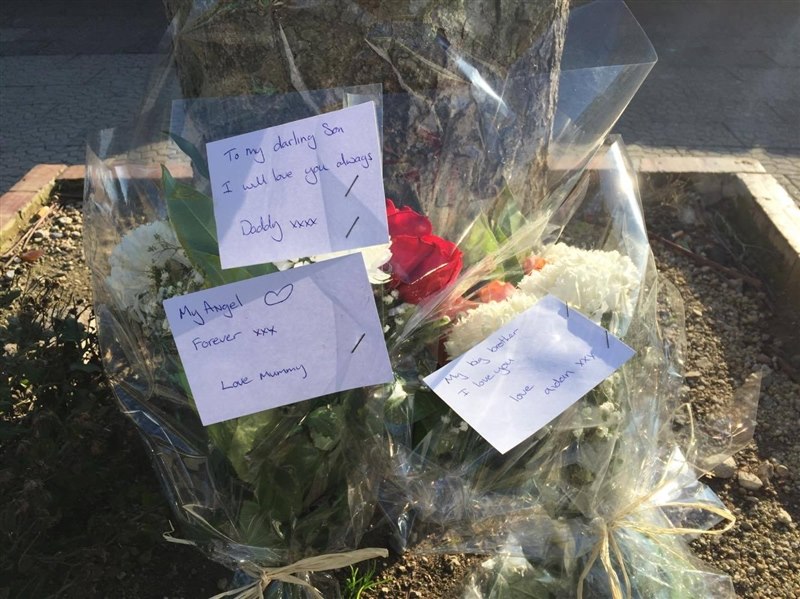 To my darling Son
I will love you always
Daddy xxxx
My Angel ♡
Forever xxx
Love Mummy
My big brother
I love you
love aidan xxx